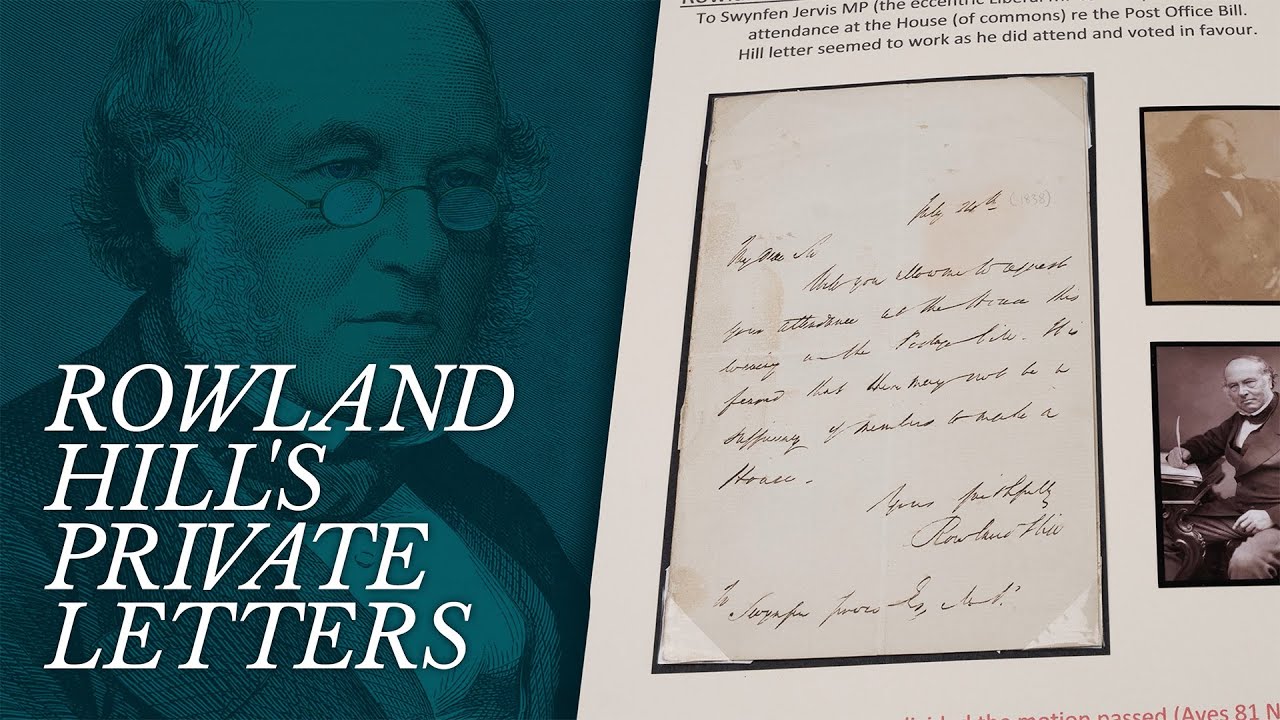 ROWLAND
HILL'S
PRIVATE
LETTERS
To Swynfen Jervis MP (the eccentric Liberal
attendance at the House (of commons) re the Post Office Bill.
Hill letter seemed to work as he did attend and voted in favour.
July 24th (1838)
My Dear Sir
Will you allow me to request
your attendance at the House this
evening on the Postage bill. It is
feared that there may not be a
sufficiency of members to make a
House.
Yours faithfully
Rowland Hill
To
Swynfen Jervis Esq M.P.
divided the motion passed (Ayes 81 N